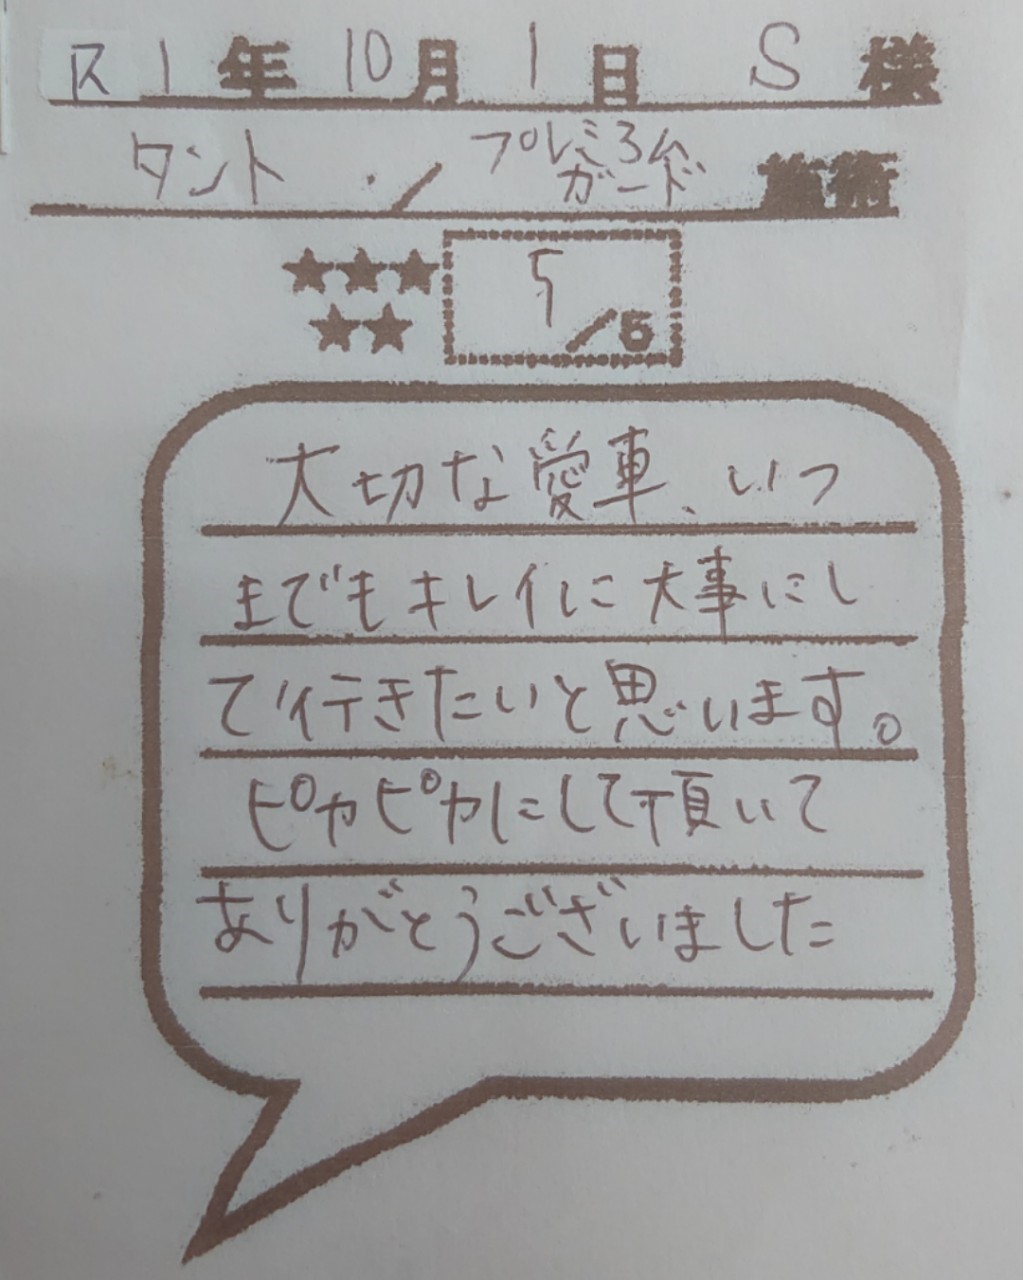 R1年10月1日 S様
タント / プレミアム
ガード 施術
★★★
★★
5/5
大切な愛車、いつ
までもキレイに大事にし
て行きたいと思います。
ピカピカにして頂いて
ありがとうございました